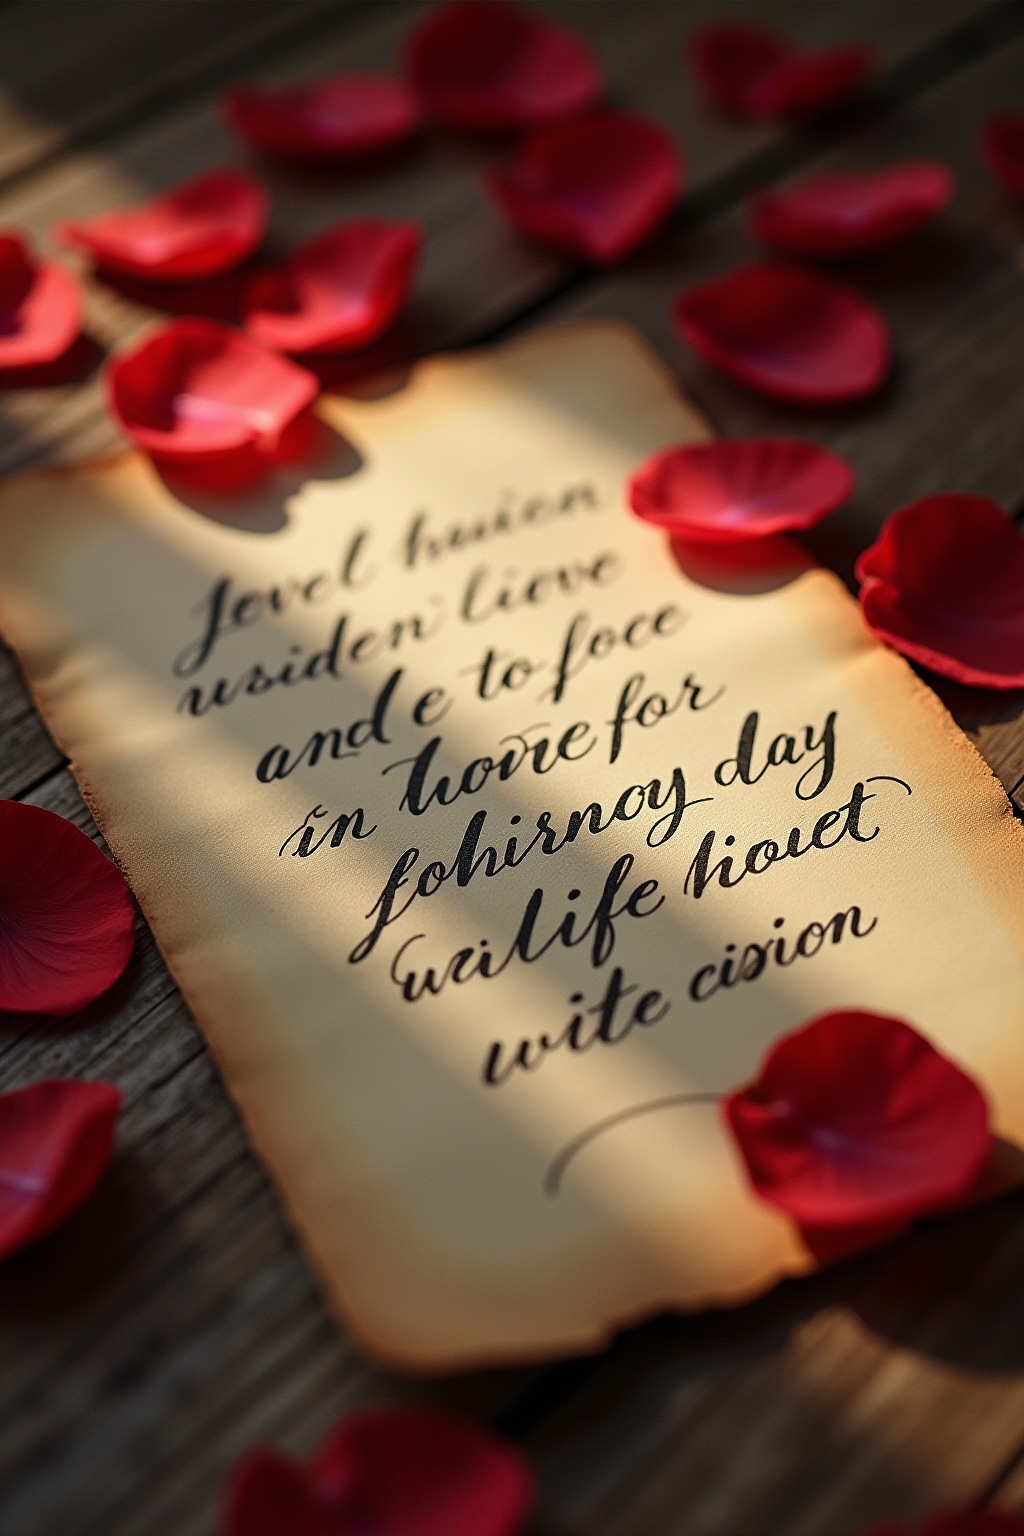 fevel huien
usiden lieve
and e to foce
in hovie for
fohirnoy day
wrilife hiouet
wite cision